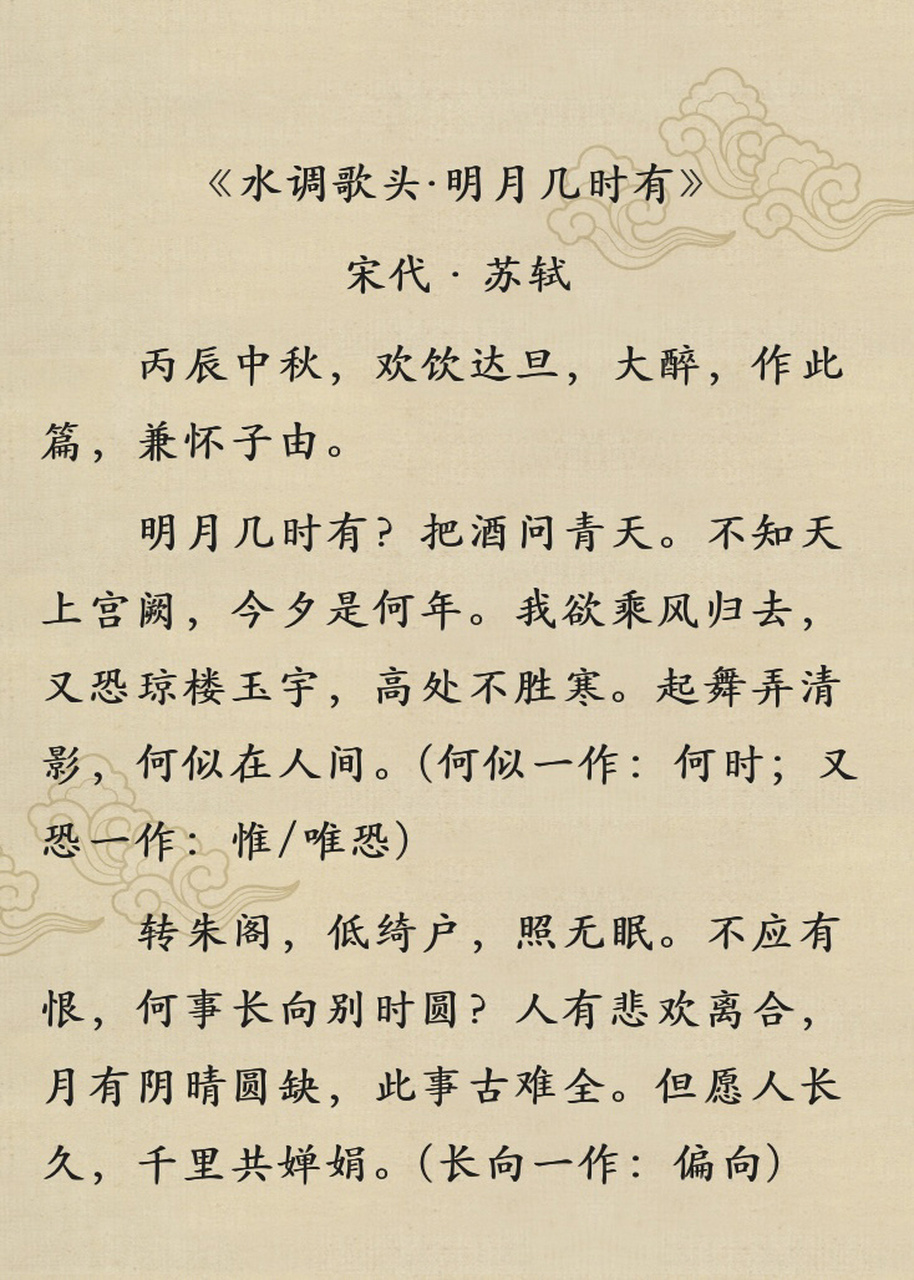 《水调歌头·明月几时有》
宋代 · 苏轼
丙辰中秋，欢饮达旦，大醉，作此
篇，兼怀子由。
明月几时有？把酒问青天。不知天
上宫阙，今夕是何年。我欲乘风归去，
又恐琼楼玉宇，高处不胜寒。起舞弄清
影，何似在人间。（何似一作：何时；又
恐一作：惟/唯恐）
转朱阁，低绮户，照无眠。不应有
恨，何事长向别时圆？人有悲欢离合，
月有阴晴圆缺，此事古难全。但愿人长
久，千里共婵娟。（长向一作：偏向）